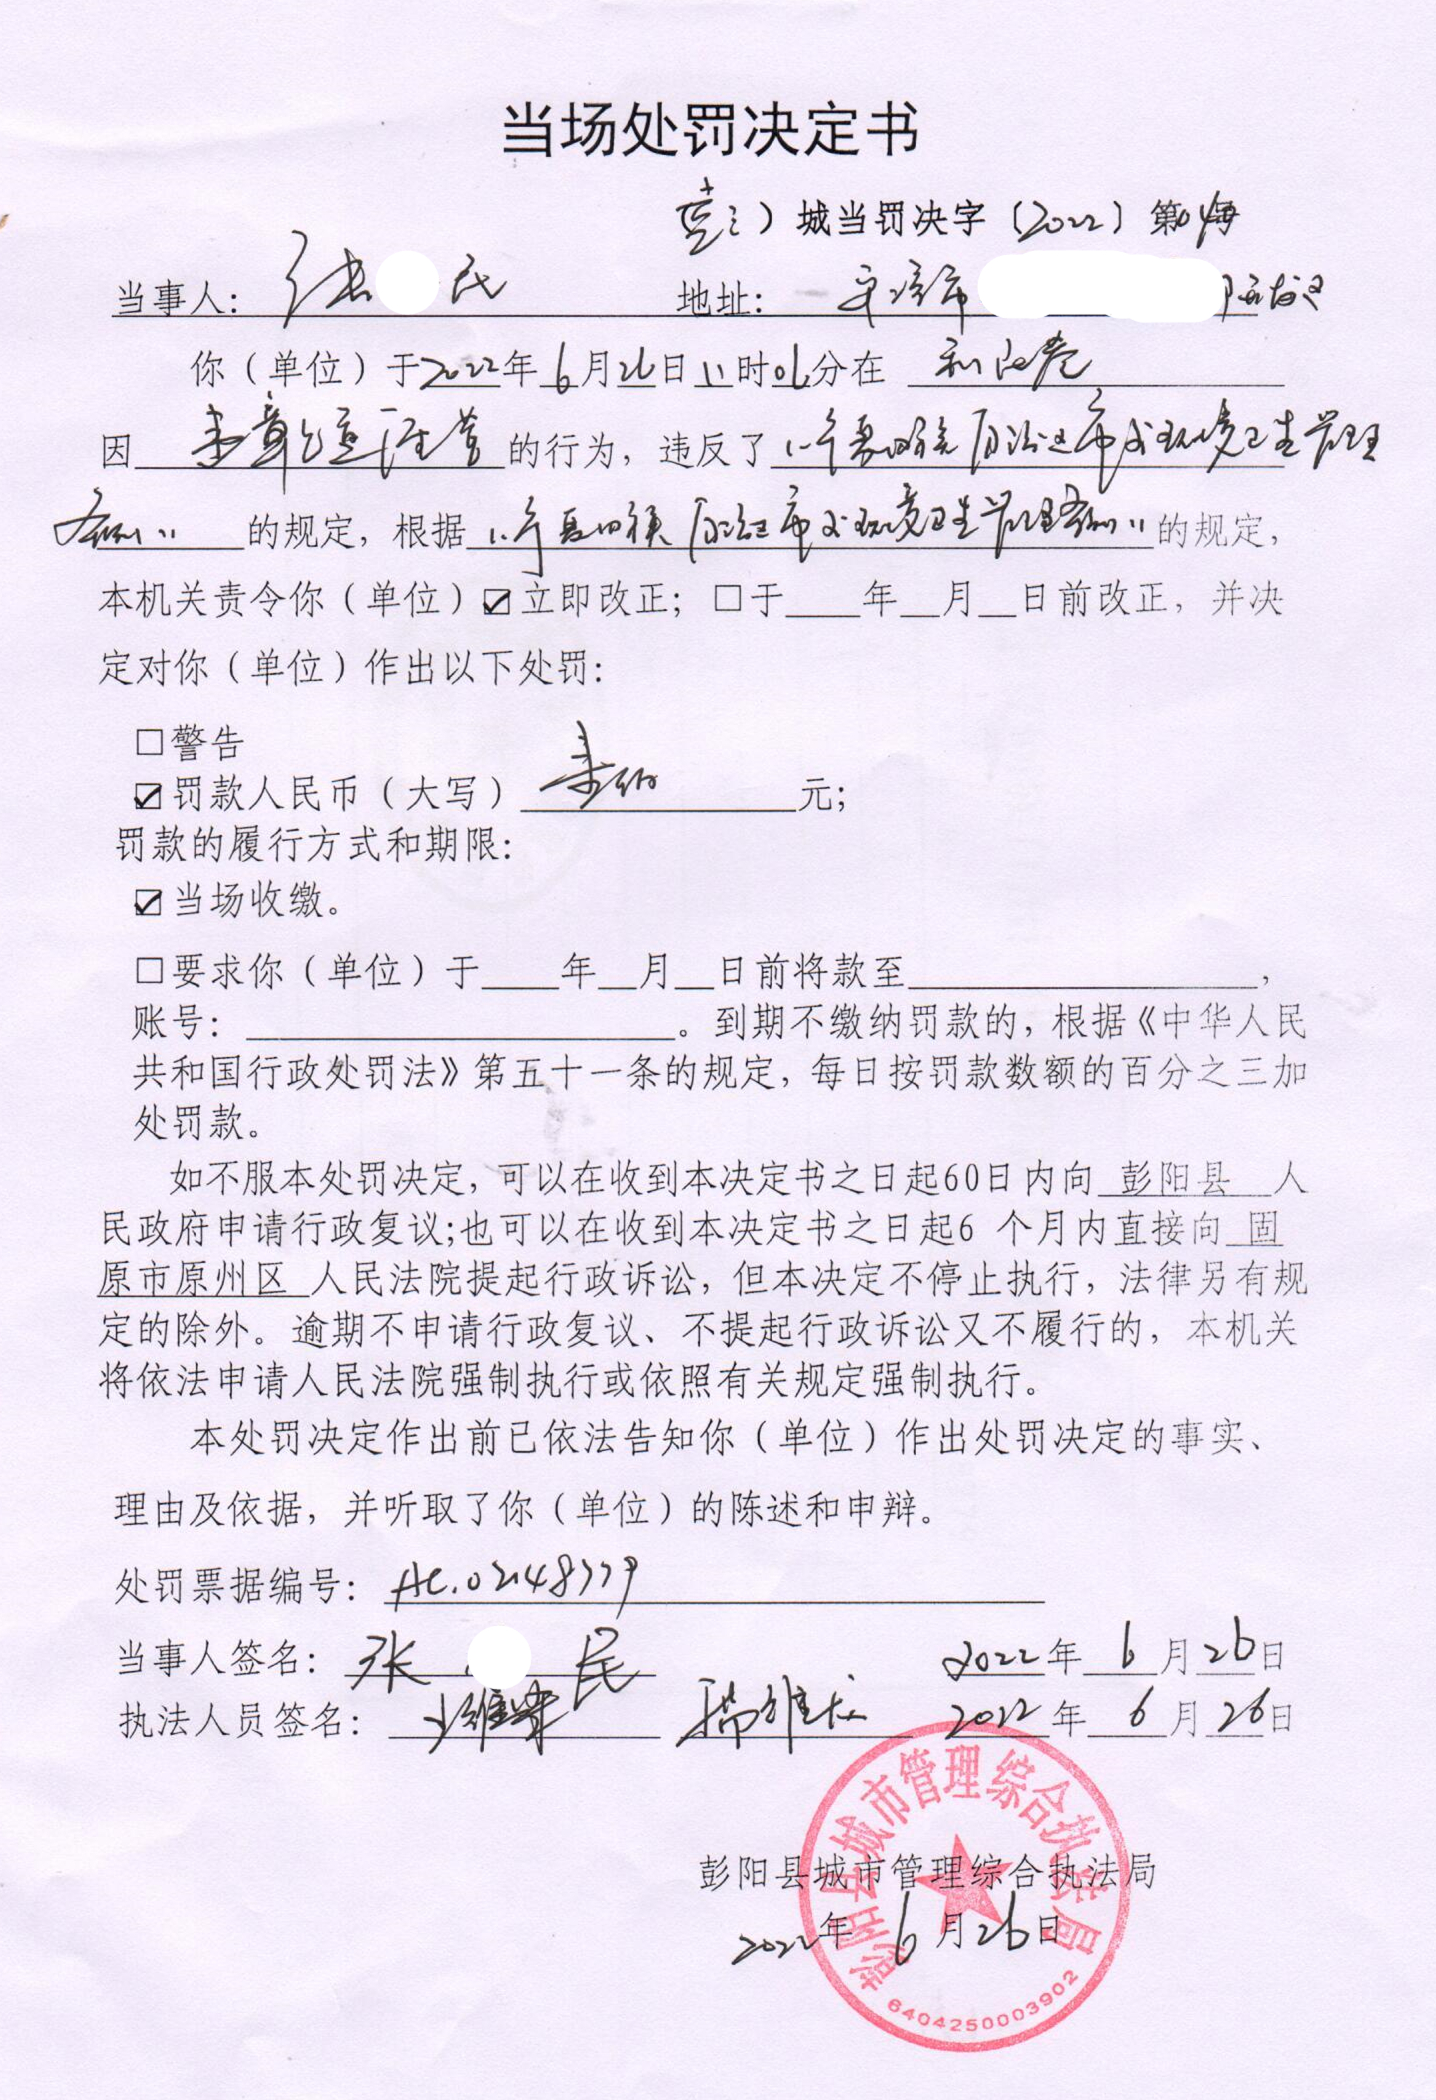 当场处罚决定书
彭）城当罚决字（2022）第 号
当事人： 张 民 地址：
你（单位）于2022年6月26日11时06分在
因 的行为，违反了《宁夏回族自治区市容环境卫生管理
条例》的规定，根据《宁夏回族自治区市容环境卫生管理条例》的规定，
本机关责令你（单位）☑立即改正；□于____年__月__日前改正，并决
定对你（单位）作出以下处罚：
□警告
☑罚款人民币（大写） 元；
罚款的履行方式和期限：
☑当场收缴。
□要求你（单位）于____年__月__日前将款至__________________，
账号：______________________。到期不缴纳罚款的，根据《中华人民
共和国行政处罚法》第五十一条的规定，每日按罚款数额的百分之三加
处罚款。
如不服本处罚决定，可以在收到本决定书之日起60日内向 彭阳县 人
民政府申请行政复议;也可以在收到本决定书之日起6 个月内直接向 固
原市原州区 人民法院提起行政诉讼，但本决定不停止执行，法律另有规
定的除外。逾期不申请行政复议、不提起行政诉讼又不履行的，本机关
将依法申请人民法院强制执行或依照有关规定强制执行。
本处罚决定作出前已依法告知你（单位）作出处罚决定的事实、
理由及依据，并听取了你（单位）的陈述和申辩。
处罚票据编号：
当事人签名： 张 民 2022年 6月26日
执法人员签名： 2022年 6月26日
彭阳县城市管理综合执法局
2022年 6月26日
彭阳县城市管理综合执法局
6404250003902